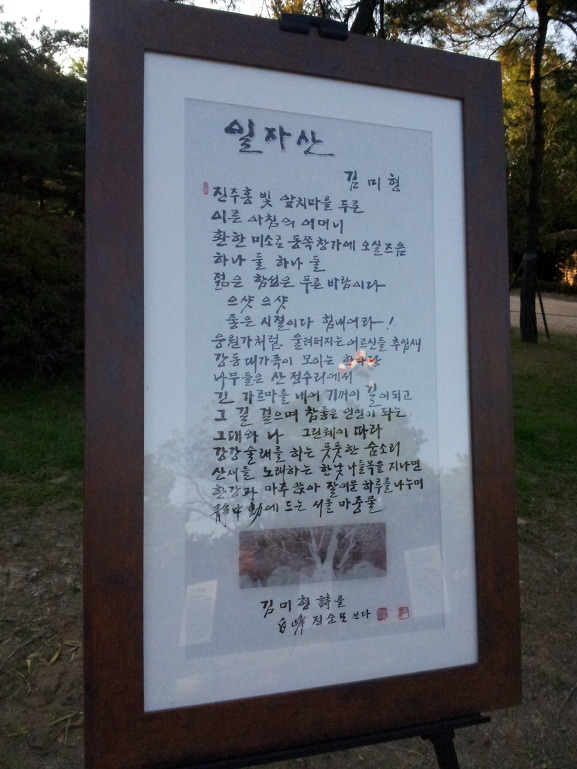 일자산
김미형
진주홍 빛 앞치마를 두른
이른 아침의 어머니
환한 미소로 동쪽 창가에 오실즈음
하나 둘 하나 둘
젊은 함성은 푸른 바람이다
으샷 으샷
좋은 시절이다 힘내어라~!
응원가처럼 울려퍼지는 어르신들 추임새
강동 대가족이 모이는
나무들은 산 정수리에서
긴 가르마를 내어 기꺼이 길이 되고
그 길 걸으며 참좋은 인연이 되는
그대와 나 그린웨이 따라
강강술래를 하는 풋풋한 숨소리
산새를 노래하는 한낮 나들목을 지나면
한강과 마주 앉아 잘여문 하루를 나누며
靜中動에 드는 서울 마중물
김미형 詩를
전소모 쓰다